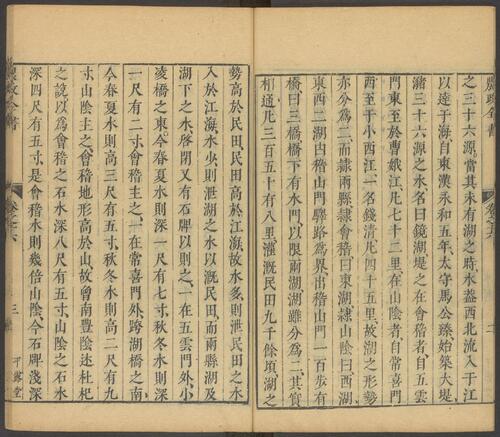 農政全書
卷之十六
二
之三十六源當其未有湖之時水盡西北流入于江
以達于海自東漢永和五年太守馬公臻始築大堤
瀦三十六源之水名曰鏡湖堤之在會稽者自五雲
門東至於曹娥江凡七十二里在山陰者自常喜門
西至于小西江一名錢清凡四十五里故湖之形勢
亦分爲二而隷兩縣隷會稽曰東湖隷山陰曰西湖
東西二湖由稽山門驛路爲界出稽山門一百步有
橋曰三橋橋下有水門以限兩湖湖雖分爲二其實
相通凡三百五十有八里灌溉民田九千餘頃湖之
勢高於民田民田高於江海故水多則泄民田之水
入於江海水少則泄湖之水以溉民田而兩縣湖及
湖下之水啓閉又有石牌以則之一在五雲門外小
凌橋之東今春夏水則深一尺有七寸秋冬水則深
一尺有二寸會稽主之一在常喜門外跨湖橋之南
今春夏水則高三尺有五寸秋冬水則高二尺有九
寸山陰主之會稽地形高於山故曾南豐隂述杜杞
之說以爲會稽之石水深八尺有五寸山陰之石水
深四尺有五寸是會稽水則幾倍山陰今石牌淺深
農政全書
卷之十六
三
平露堂